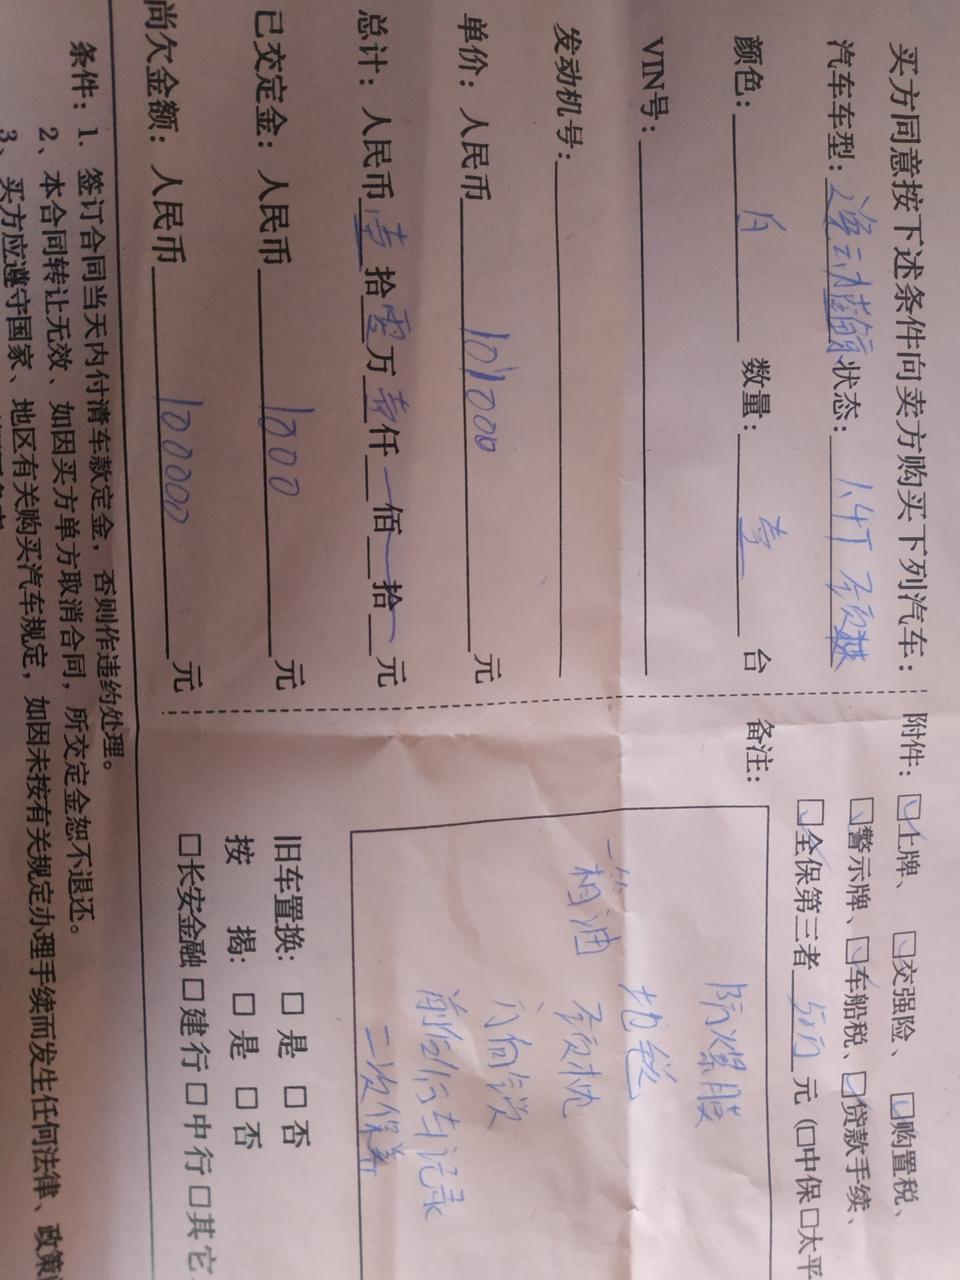 买方同意按下述条件向卖方购买下列汽车：
汽车车型：逸动 状态：1.4T
颜色：白 数量：壹 台
VIN号：
发动机号：
单价：人民币 101000 元
总计：人民币 壹 拾 零 万 壹 仟 佰 拾 元
已交定金：人民币 1000 元
尚欠金额：人民币 100000 元
附件：☑上牌、☑交强险、☑购置税、
☑警示牌、☑车船税、☑贷款手续、
☑全保第三者 50万 元（□中保□太平
备注：
防爆膜
地毯
一箱油 头枕
方向锁
前后行车记录
二次保养
旧车置换：□是 □否
按 揭：□是 □否
□长安金融□建行□中行□其它
条件：1. 签订合同当天内付清车款定金，否则作违约处理。
2、本合同转让无效、如因买方单方取消合同，所交定金恕不退还。
3、买方应遵守国家、地区有关购买汽车规定，如因未按有关规定办理手续而发生任何法律、政策